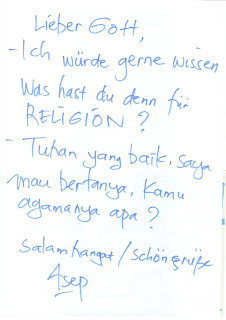 Lieber Gott,
- Ich würde gerne wissen
Was hast du denn für
RELIGIÓN ?
- Tuhan yang baik, saya
mau bertanya, Kamu
agamanya apa ?
salam hangat / schöne grüße
Asep